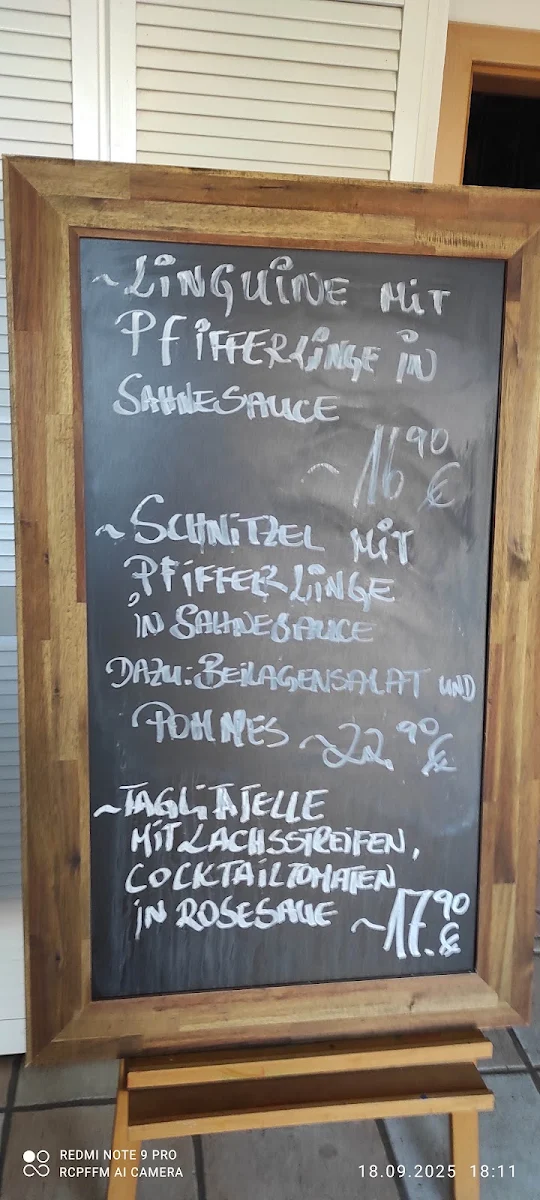 ~LINGUINE MIT
PFIFFERLINGE IN
SAHNESAUCE
~16 90 €
~SCHNITZEL MIT
PFIFFERLINGE
IN SAHNESAUCE
DAZU: BEILAGENSALAT UND
POMMES ~22, 90 €
~TAGLIATELLE
MIT LACHSSTREIFEN,
COCKTAILTOMATEN
IN ROSESAUE ~17. 90 €
REDMI NOTE 9 PRO
RCPFFM AI CAMERA
18.09.2025 18:11